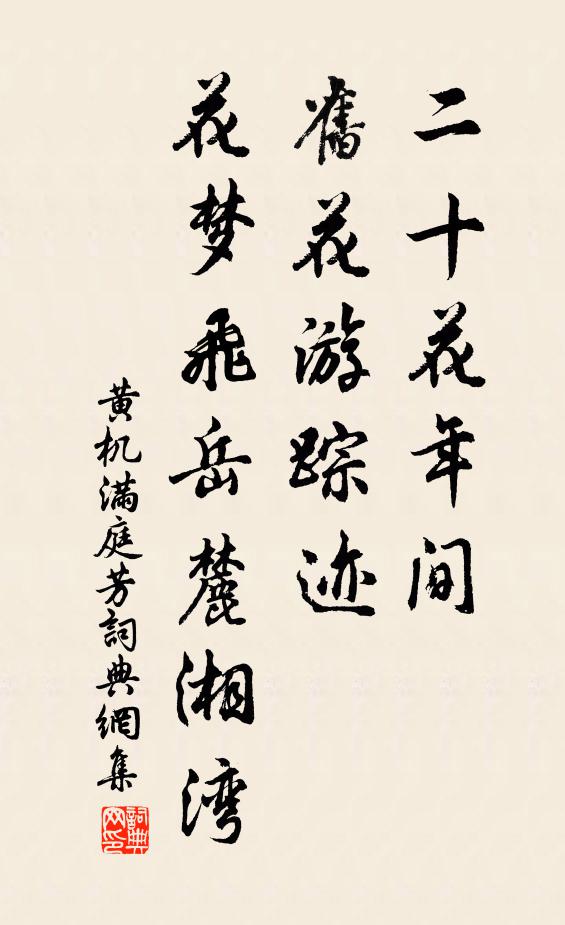 二十花年间
舊花游踪迹
花梦飛岳麓湘湾
黄机满庭芳詞典網集
詞典
网印